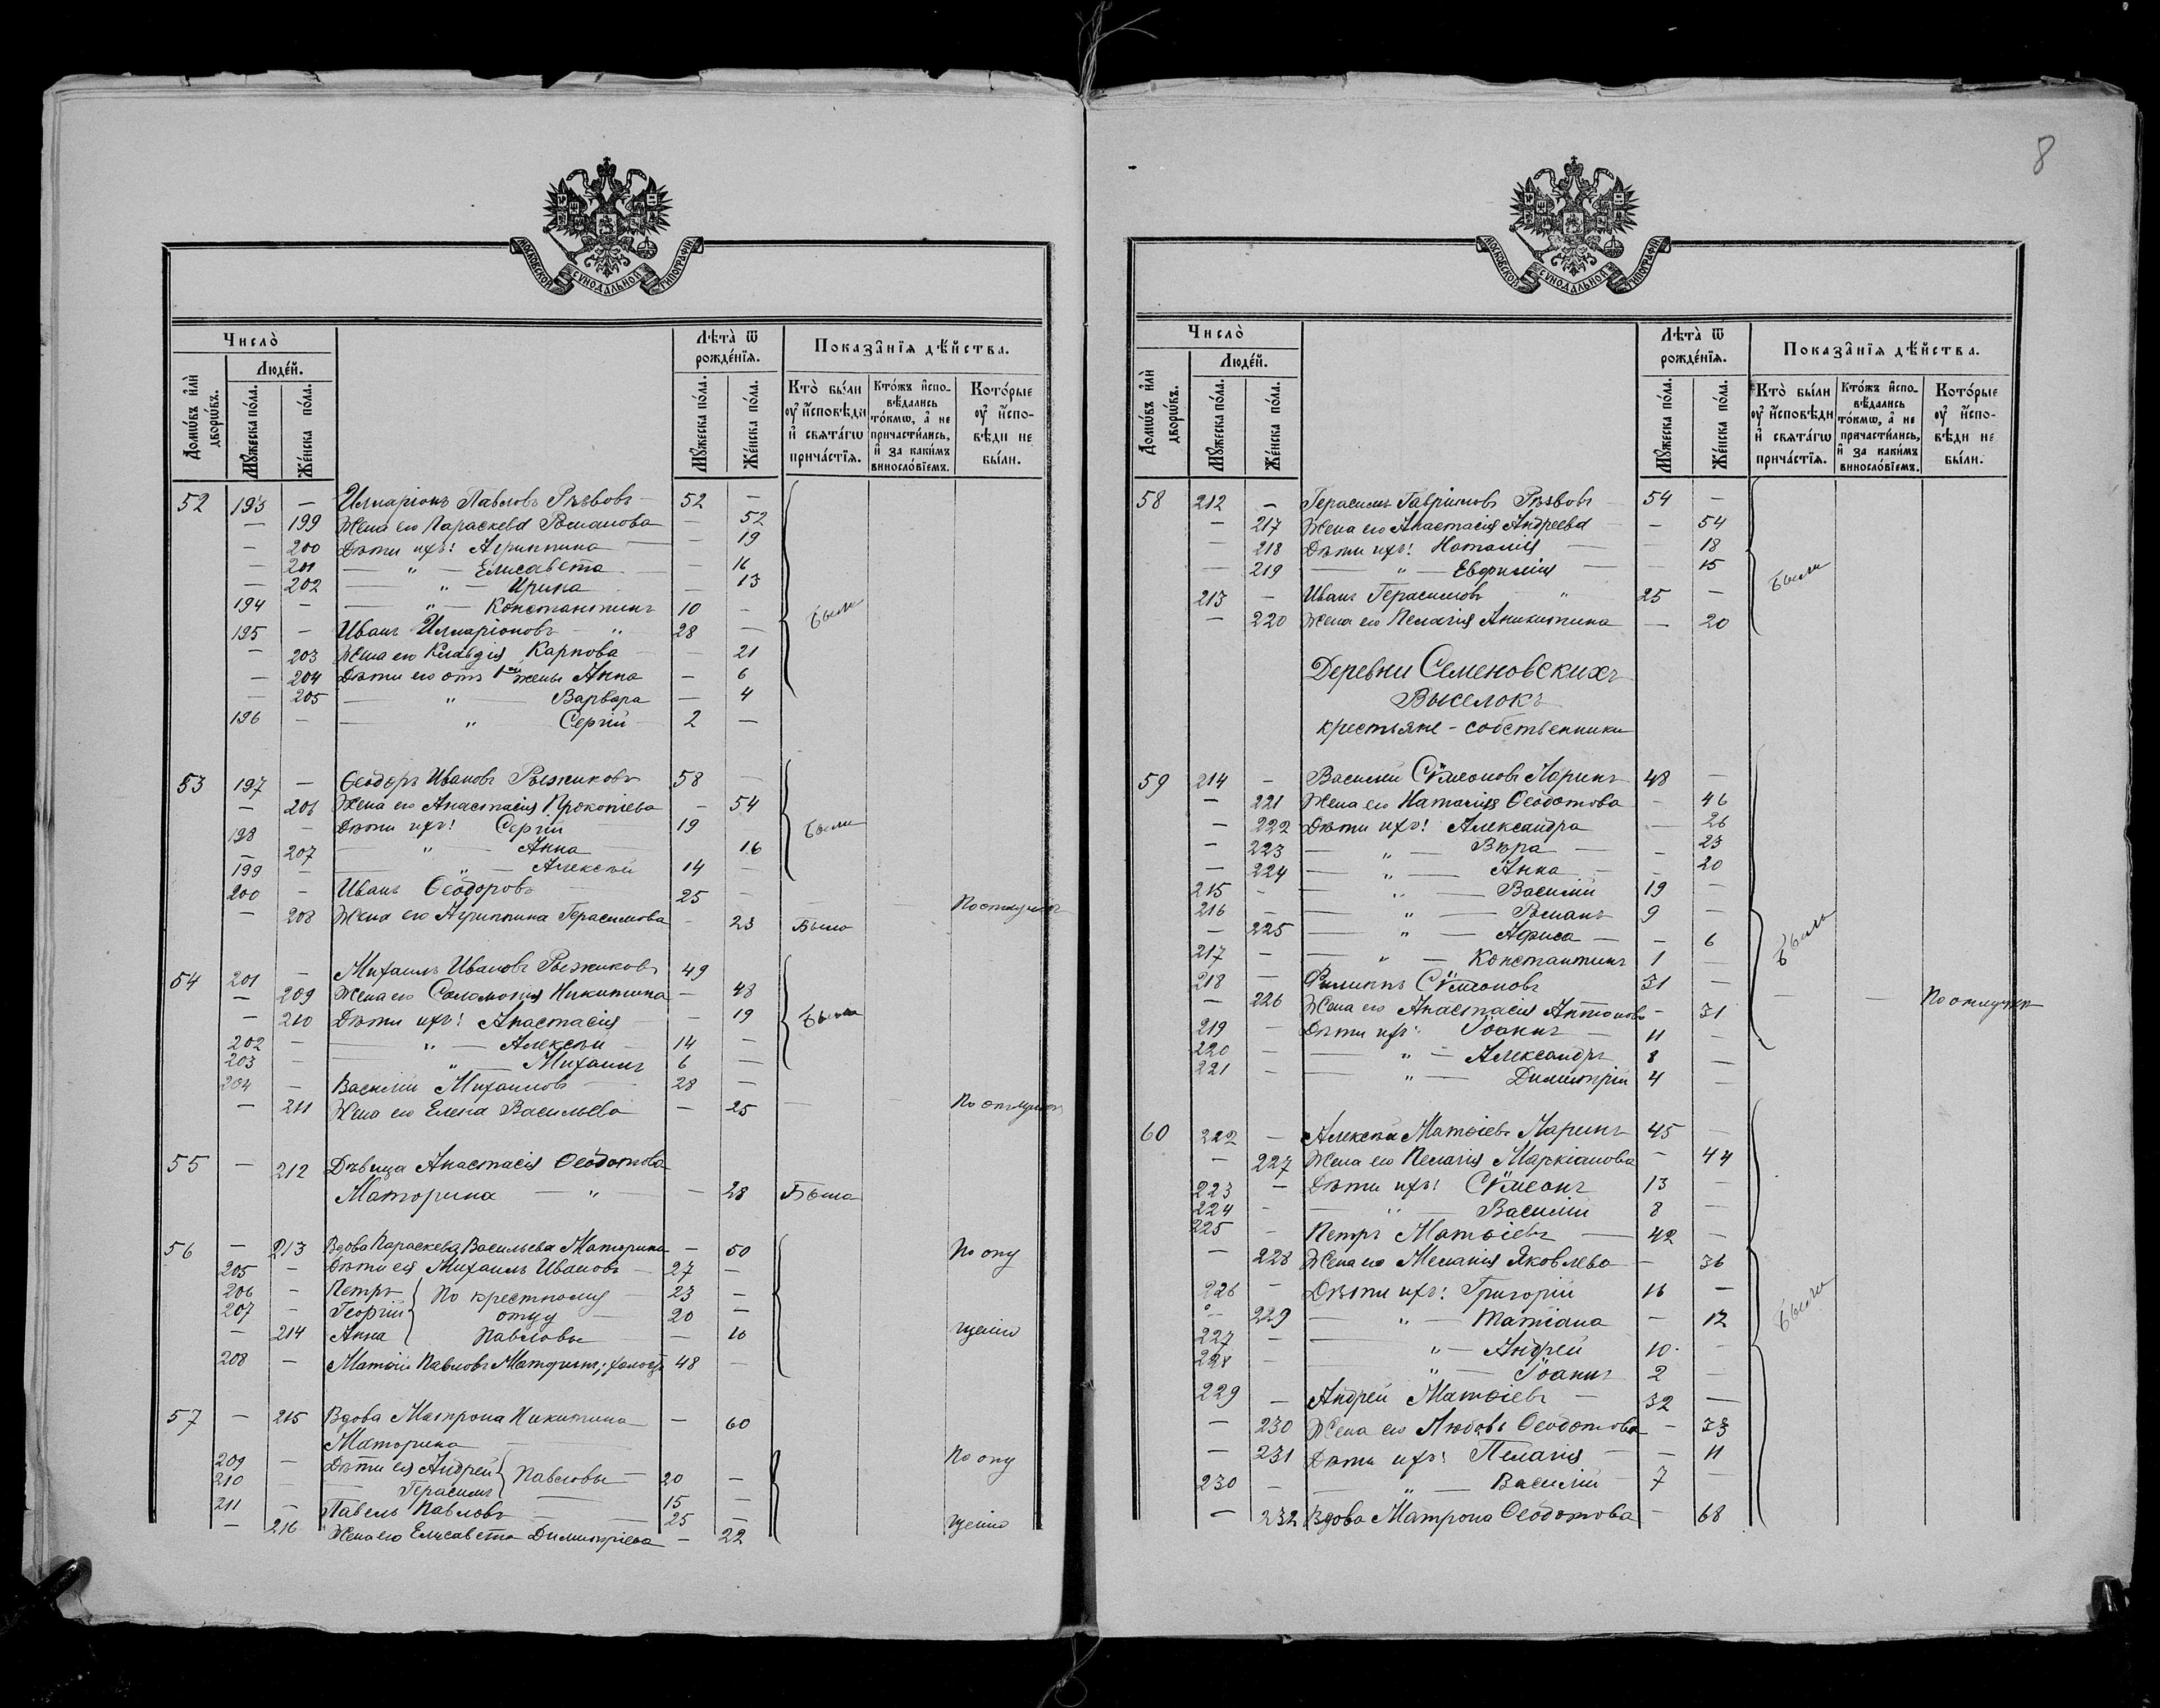 8
МОСКОВСКОЙ СѴНОДАЛЬНОЙ ТИПОГРАФІИ
Число̀
Люде́й.
Домѡ́въ и҆лѝ дворѡ́въ.
Мꙋ́жеска по́ла.
Же́нска по́ла.
Лѣ́та ѿ рожде́нїѧ.
Мꙋ́жеска по́ла.
Же́нска по́ла.
Показа̑нїѧ дѣ́йства.
Кто̀ бы́ли ᲂу҆ и҆́сповѣди и҆ свѧта́гѡ прича́стїѧ.
Кто́жъ и҆спо-вѣ́дались то́кмѡ, а҆ не причасти́лись, и҆ за каки́мъ винословіемъ.
Кото́рые ᲂу҆ и҆́спо-вѣди не бы́ли.
52 193 — Илларіонъ Павловъ Рѣзвовъ — 52 —
— 199 Жена его Параскева Романова — 52
— 200 Дѣти ихъ: Агриппина — 19
— 201 — " — Елисавета — 16
— 202 — " — Ирина — 13
194 — — " — Константинъ 10 —
195 — Иванъ Илларіоновъ — " 28 —
— 203 Жена его Клавдія Карпова — 21
— 204 Дѣти его отъ 1ой жены Анна — 6
— 205 — " — Варвара — 4
196 — — " Сергій 2 —
Были
53 197 — Ѳеодоръ Ивановъ Рыжиковъ 58 —
— 206 Жена его Анастасія Прокопіева — 54
198 — Дѣти ихъ: Сергій 19
— 207 — " — Анна — 16
199 — — " — Алексѣй 14 —
Были
200 — Иванъ Ѳеодоровъ 25 — — — По отлучкѣ
— 208 Жена его Агриппина Герасимова — 23 Была
54 201 — Михаилъ Ивановъ Рыжиковъ 49
— 209 Жена его Соломонія Никитина — 48
— 210 Дѣти ихъ: Анастасія — 19
202 — — " — Алексѣй — 14 —
203 — — " — Михаилъ 6 —
Были
204 — Василій Михаиловъ 28 —
— 211 Жена его Елена Васильева — 25 — — По отлучкѣ
55 — 212 Дѣвица Анастасія Ѳеодотова
Маторина — " — 28 Была
56 — 213 Вдова Параскева Васильева Маторина — 50 По опу
205 — Дѣти ея Михаилъ Ивановъ — 27 —
206 — Петръ По крестному 23 —
207 — Георгій отцу 20 —
— 214 Анна Павловы — 10 щенію
208 — Матѳій Павловъ Маторинъ; холостъ 48 —
57 — 215 Вдова Матрона Никитина — 60
Маторина
209 — Дѣти ея Андрей Павловы — 20 — По опу
210 — Герасимъ 15 —
211 — Павелъ Павловъ 25 —
— 216 Жена его Елисавета Димитріева — 22 щенію
МОСКОВСКОЙ СѴНОДАЛЬНОЙ ТИПОГРАФІИ
Число̀
Люде́й.
Домѡ́въ и҆лѝ дворѡ́въ.
Мꙋ́жеска по́ла.
Же́нска по́ла.
Лѣ́та ѿ рожде́нїѧ.
Мꙋ́жеска по́ла.
Же́нска по́ла.
Показа̑нїѧ дѣ́йства.
Кто̀ бы́ли ᲂу҆ и҆́сповѣди и҆ свѧта́гѡ прича́стїѧ.
Кто́жъ и҆спо-вѣ́дались то́кмѡ, а҆ не причасти́лись, и҆ за каки́мъ винословіемъ.
Кото́рые ᲂу҆ и҆́спо-вѣди не бы́ли.
58 212 — Герасимъ Гавріиловъ Рѣзвовъ 54 —
— 217 Жена его Анастасія Андреева — 54
— 218 Дѣти ихъ: Наталія — 18
— 219 — " — Евфимія — 15
213 — Иванъ Герасимовъ " 25 —
— 220 Жена его Пелагія Аникитина — 20
Были
Деревни Семеновскихъ
Выселокъ
крестьяне-собственники
59 214 — Василій Сѵмеоновъ Ларинъ 48 —
— 221 Жена его Наталія Ѳеодотова — 46
— 222 Дѣти ихъ: Александра — 26
— 223 — " — Вѣра — 23
— 224 — " — Анна — 20
215 — — " — Василій 19 —
216 — — " — Романъ 9 —
— 225 — " — Афиса — 6
217 — — " — Константинъ 1 —
Были
218 — Филиппъ Сѵмеоновъ 31 — — — По отлучкѣ
— 226 Жена его Анастасія Антонова — 31
219 — Дѣти ихъ: Іоаннъ — 11 —
220 — — " — Александръ 8 —
221 — — " — Димитрій 4 —
60 222 — Алексѣй Матѳіевъ Ларинъ 45 —
— 227 Жена его Пелагія Маркіанова — 44
223 — Дѣти ихъ: Сѵмеонъ 13 —
224 — — " — Василій 8 —
225 — Петръ Матѳіевъ — 42 —
— 228 Жена его Меланія Яковлева — 36
226 — Дѣти ихъ: Григорій 16 —
— 229 — " — Татіана — 12
227 — — " — Андрей 10 —
228 — — " — Іоаннъ 2 —
Были
229 — Андрей Матѳіевъ — 32 —
— 230 Жена его Любовь Ѳеодотова — 33
— 231 Дѣти ихъ: Пелагія — 11
230 — — " — Василій 7 —
— 232 Вдова Матрона Ѳеодотова — 68